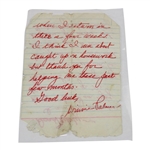 when I return in
there a few weeks
I think I am about
caught up on housework
but thank you for
helping me these past
few months.
Good luck,